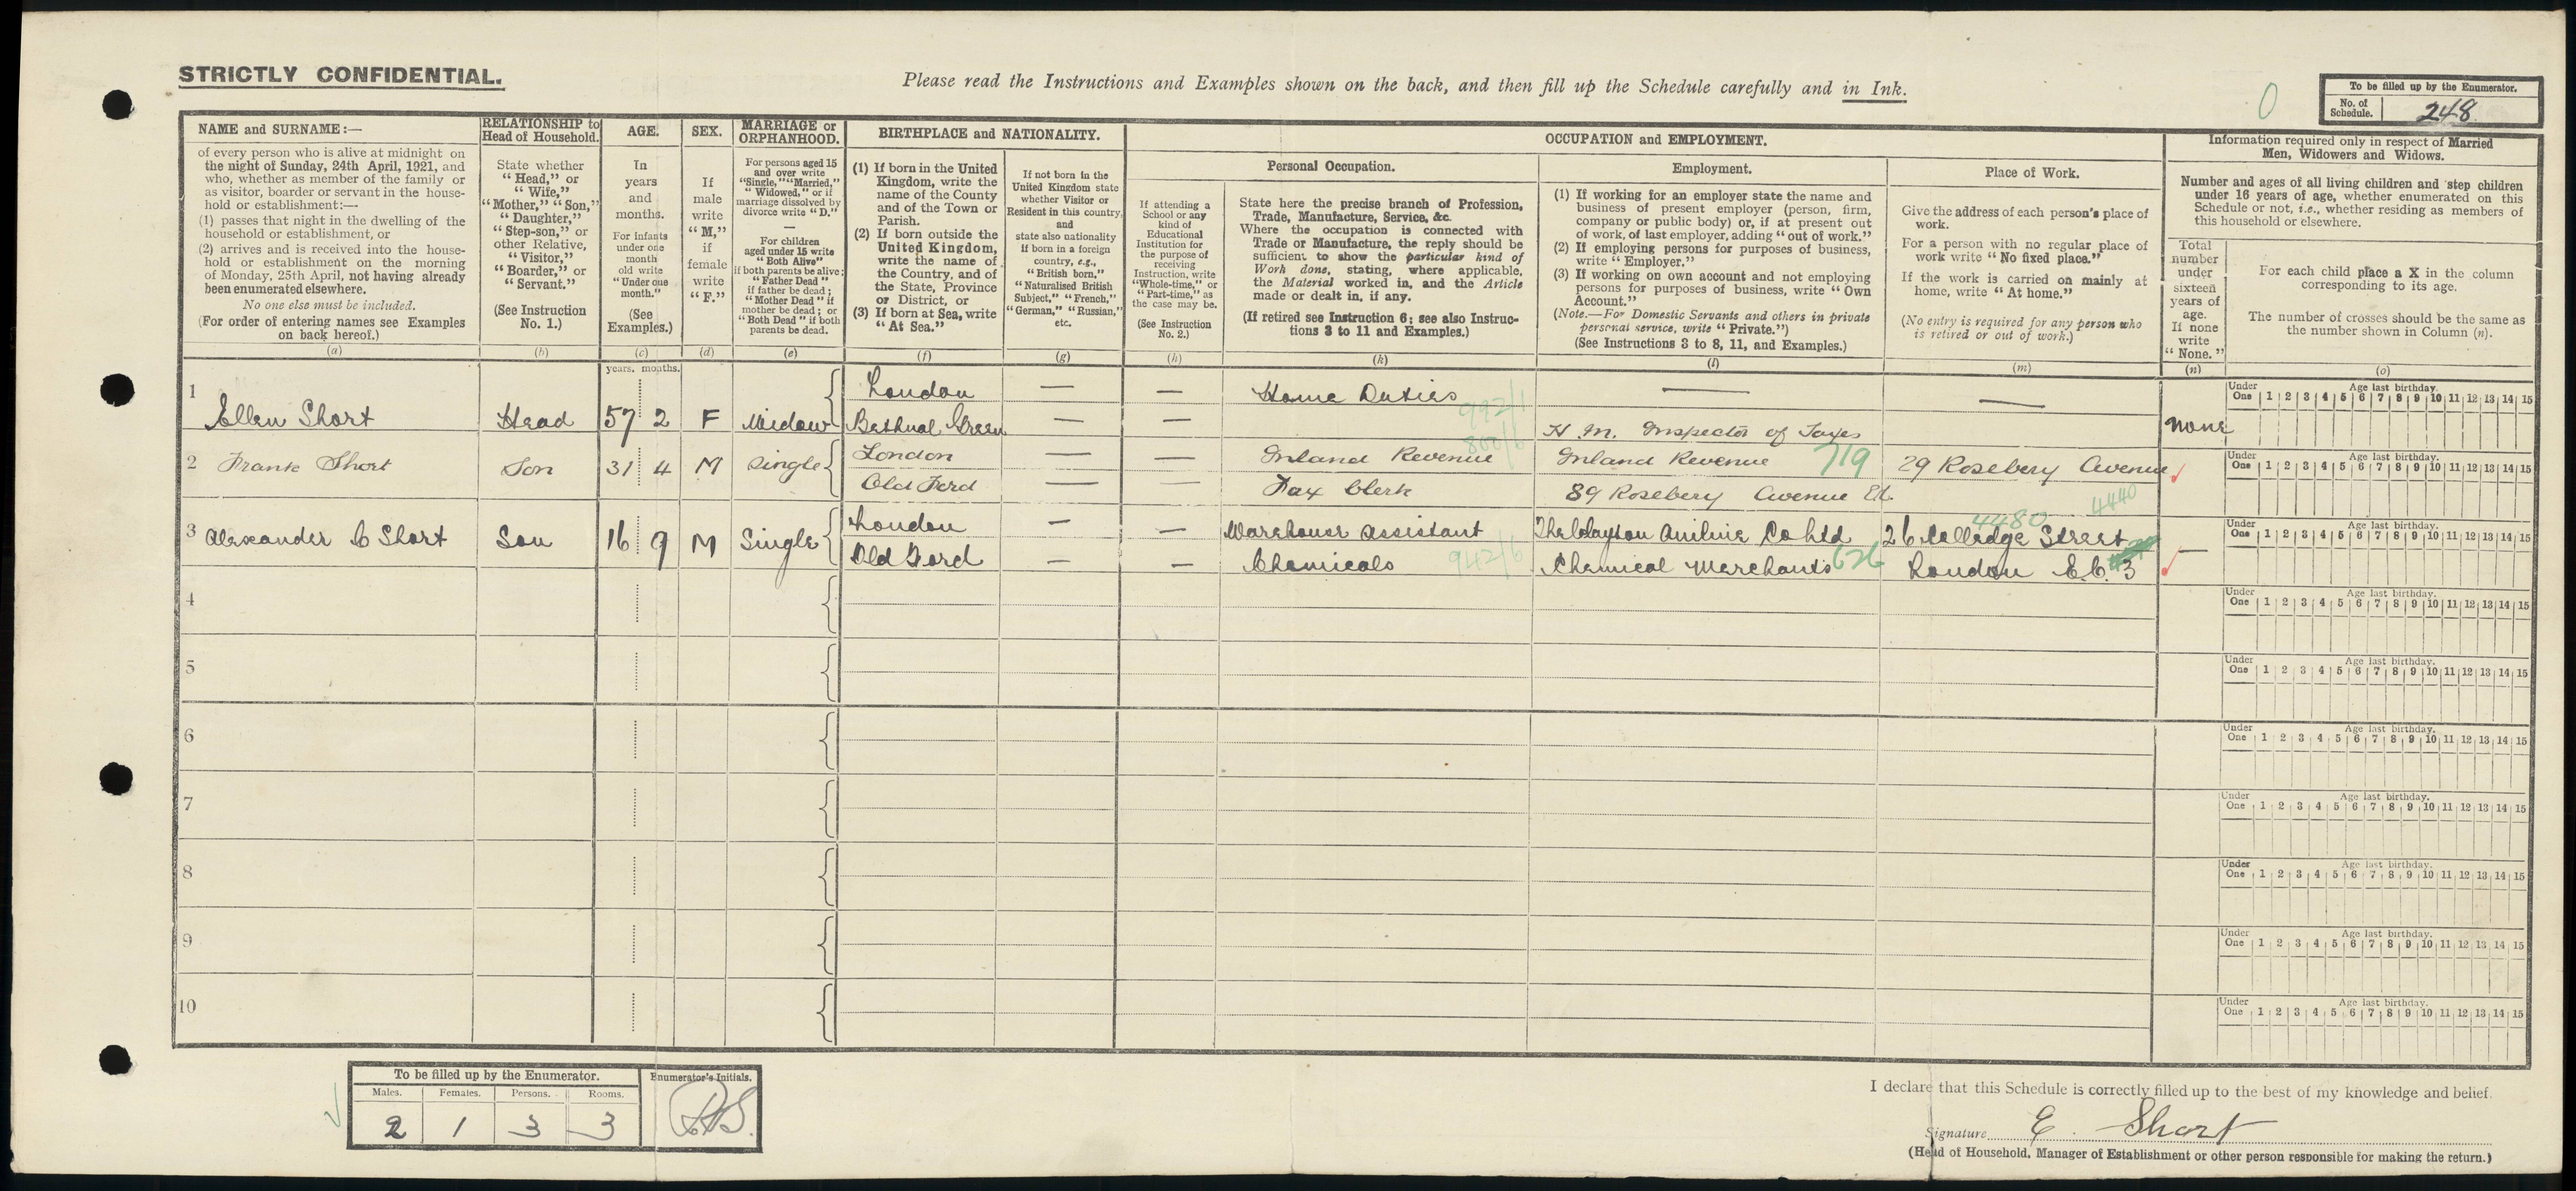 STRICTLY CONFIDENTIAL.
Please read the Instructions and Examples shown on the back, and then fill up the Schedule carefully and in Ink.
0
To be filled up by the Enumerator.
No. of Schedule. 248
NAME and SURNAME:—
of every person who is alive at midnight on
the night of Sunday, 24th April, 1921, and
who, whether as member of the family or
as visitor, boarder or servant in the house-
hold or establishment:—
(1) passes that night in the dwelling of the
household or establishment, or
(2) arrives and is received into the house-
hold or establishment on the morning
of Monday, 25th April, not having already
been enumerated elsewhere.
No one else must be included.
(For order of entering names see Examples
on back hereof.)
(a)
RELATIONSHIP to
Head of Household.
State whether
"Head," or
"Wife,"
"Mother," "Son,"
"Daughter,"
"Step-son," or
other Relative,
"Visitor,"
"Boarder," or
"Servant."
(See Instruction
No. 1.)
(b)
AGE.
In
years
and
months.
For infants
under one
month
old write
"Under one
month."
(See
Examples.)
(c)
SEX.
If
male
write
"M,"
if
female
write
"F."
(d)
MARRIAGE or
ORPHANHOOD.
For persons aged 15
and over write
"Single," "Married,"
"Widowed," or if
marriage dissolved by
divorce write "D."
—
For children
aged under 15 write
"Both Alive"
if both parents be alive;
"Father Dead"
if father be dead;
"Mother Dead" if
mother be dead; or
"Both Dead" if both
parents be dead.
(e)
BIRTHPLACE and NATIONALITY.
(1) If born in the United
Kingdom, write the
name of the County
and of the Town or
Parish.
(2) If born outside the
United Kingdom,
write the name of
the Country, and of
the State, Province
or District, or
(3) If born at Sea, write
"At Sea."
(f)
If not born in the
United Kingdom state
whether Visitor or
Resident in this country,
and
state also nationality
if born in a foreign
country, e.g.,
"British born,"
"Naturalised British
Subject," "French,"
"German," "Russian,"
etc.
(g)
OCCUPATION and EMPLOYMENT.
If attending a
School or any
kind of
Educational
Institution for
the purpose of
receiving
Instruction, write
"Whole-time," or
"Part-time," as
the case may be.
(See Instruction
No. 2.)
(h)
Personal Occupation.
State here the precise branch of Profession,
Trade, Manufacture, Service, &c.
Where the occupation is connected with
Trade or Manufacture, the reply should be
sufficient to show the particular kind of
Work done, stating, where applicable,
the Material worked in, and the Article
made or dealt in, if any.
(If retired see Instruction 6; see also Instruc-
tions 3 to 11 and Examples.)
(k)
Employment.
(1) If working for an employer state the name and
business of present employer (person, firm,
company or public body) or, if at present out
of work, of last employer, adding "out of work."
(2) If employing persons for purposes of business,
write "Employer."
(3) If working on own account and not employing
persons for purposes of business, write "Own
Account."
(Note.—For Domestic Servants and others in private
personal service, write "Private.")
(See Instructions 3 to 8, 11, and Examples.)
(l)
Place of Work.
Give the address of each person's place of
work.
For a person with no regular place of
work write "No fixed place."
If the work is carried on mainly at
home, write "At home."
(No entry is required for any person who
is retired or out of work.)
(m)
Information required only in respect of Married
Men, Widowers and Widows.
Number and ages of all living children and step children
under 16 years of age, whether enumerated on this
Schedule or not, i.e., whether residing as members of
this household or elsewhere.
Total
number
under
sixteen
years of
age.
If none
write
"None."
(n)
For each child place a X in the column
corresponding to its age.
The number of crosses should be the same as
the number shown in Column (n).
(o)
years. months.
1 Ellen Short Head 57 2 F Widow London — — Home Duties 992/1 — — None
Bethnal Green — —
Under One Age last birthday. 1 2 3 4 5 6 7 8 9 10 11 12 13 14 15
H. M. Inspector of Taxes
2 Frank Short Son 31 4 M Single London — — Inland Revenue 800/6 Inland Revenue 719 29 Rosebery Avenue
Old Ford — — Tax Clerk 89 Rosebery Avenue E.C. 4440
Under One Age last birthday. 1 2 3 4 5 6 7 8 9 10 11 12 13 14 15
3 Alexander C Short Son 16 9 M Single London — — Warehouse Assistant The Clayton Aniline Co Ltd 4480 26 Colledge Street —
Old Ford — — Chemicals 942/6 Chemical Merchants 626 London E.C. 3
Under One Age last birthday. 1 2 3 4 5 6 7 8 9 10 11 12 13 14 15
4
Under One Age last birthday. 1 2 3 4 5 6 7 8 9 10 11 12 13 14 15
5
Under One Age last birthday. 1 2 3 4 5 6 7 8 9 10 11 12 13 14 15
6
Under One Age last birthday. 1 2 3 4 5 6 7 8 9 10 11 12 13 14 15
7
Under One Age last birthday. 1 2 3 4 5 6 7 8 9 10 11 12 13 14 15
8
Under One Age last birthday. 1 2 3 4 5 6 7 8 9 10 11 12 13 14 15
9
Under One Age last birthday. 1 2 3 4 5 6 7 8 9 10 11 12 13 14 15
10
Under One Age last birthday. 1 2 3 4 5 6 7 8 9 10 11 12 13 14 15
To be filled up by the Enumerator.
Males. Females. Persons. Rooms.
2 1 3 3
Enumerator's Initials.
I declare that this Schedule is correctly filled up to the best of my knowledge and belief.
Signature E. Short
(Head of Household, Manager of Establishment or other person responsible for making the return.)